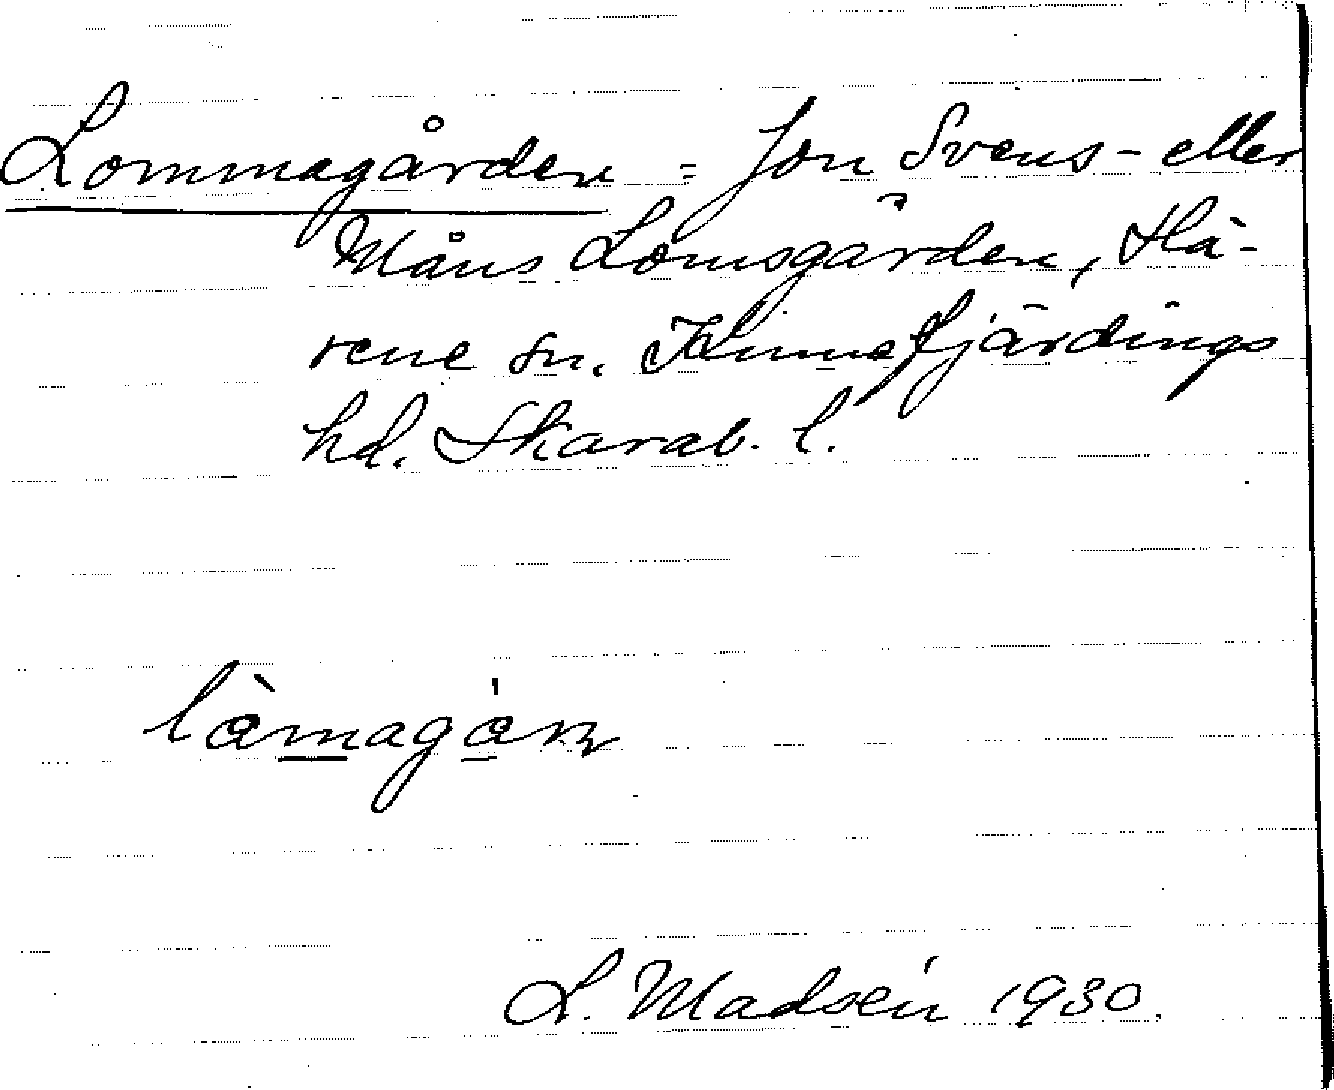 Lommagården = Jon Svens- eller
Måns Lomsgården, Hä-
rene sn. Kinnefjärdings
hd. Skarab. l.
L. Madsén 1930.